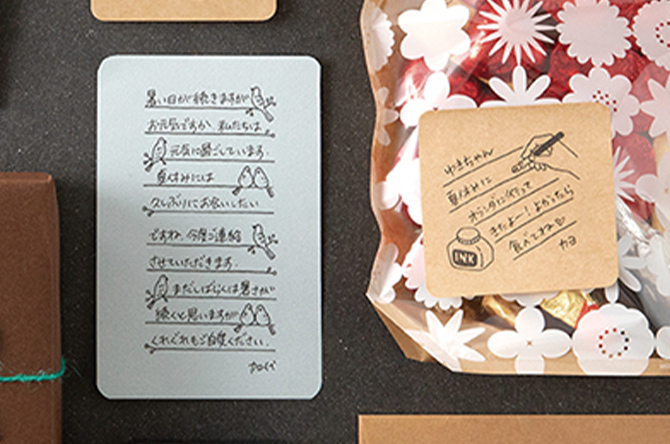 暑い日が続きますが
お元気ですか。私たちは
元気に過ごしています。
夏休みには
久しぶりにお会いしたい
ですね。今度ご連絡
させていただきます。
まだしばらくは暑さが
続くと思いますが
くれぐれもご自愛ください。
ゆきちゃん
夏休みに
オランダに行って
きたよー！よかったら
食べてね
カヨ
INK